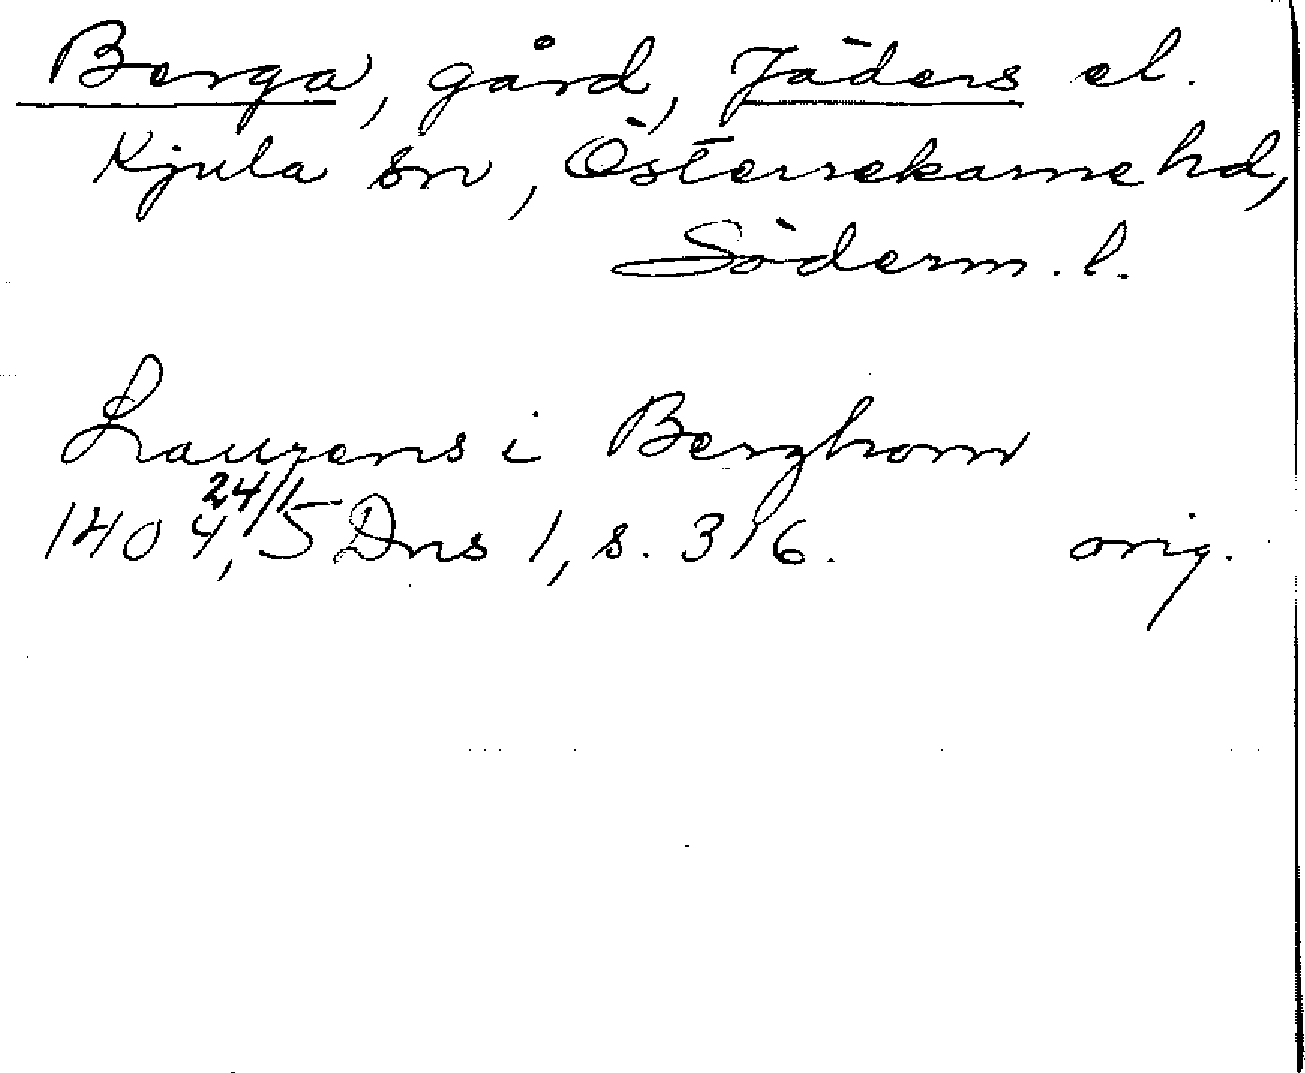 Berga, gård, Jäders el.
Kjula sn, Österrekarne hd,
Söderm. l.
Laurens i Berghom
24/1
1404, SDns 1, s. 316. orig.